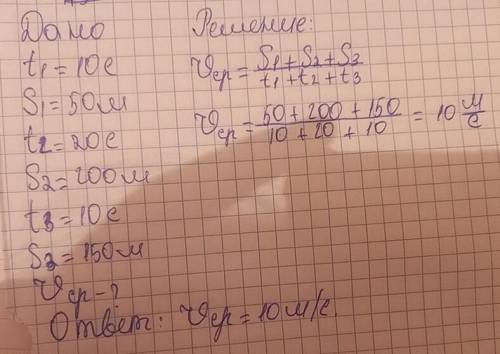 Дано
t₁=10с
S₁=50м
t₂=20с
S₂=200м
t₃=10с
S₃=150м
Vср-?
Решение:
Vср = (S₁+S₂+S₃)/(t₁+t₂+t₃)
Vср = (50+200+150)/(10+20+10) = 10 м/с
Ответ: Vср=10м/с